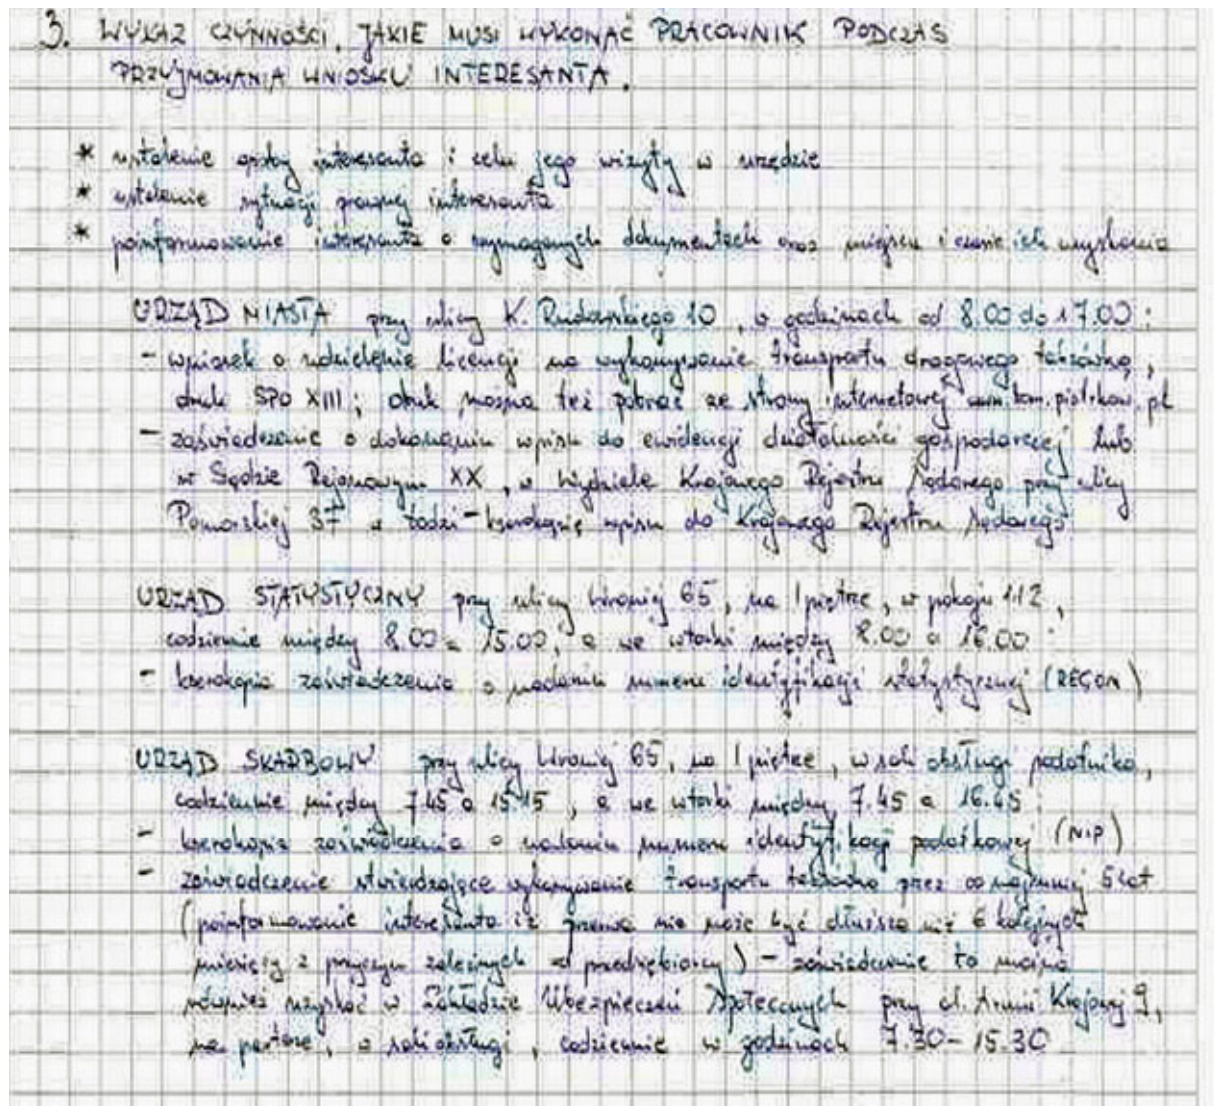 3. WYKAZ CZYNNOŚCI, JAKIE MUSI WYKONAĆ PRACOWNIK PODCZAS
PRZYJMOWANIA WNIOSKU INTERESANTA.
* ustalenie osoby interesanta i celu jego wizyty w urzędzie
* ustalenie sytuacji prawnej interesanta
* poinformowanie interesanta o wymaganych dokumentach oraz miejscu i czasie ich uzyskania
URZĄD MIASTA przy ulicy K. Rudowskiego 10, w godzinach od 8.00 do 17.00:
- wniosek o udzielenie licencji na wykonywanie transportu drogowego taksówką,
druk SPO XIII; druk można też pobrać ze strony internetowej www.bom.piotrkow.pl
- zaświadczenie o dokonaniu wpisu do ewidencji działalności gospodarczej lub
w Sądzie Rejonowym XX, w Wydziale Krajowego Rejestru Sądowego przy ulicy
Pomorskiej 37 w Łodzi - kserokopię wpisu do Krajowego Rejestru Sądowego
URZĄD STATYSTYCZNY przy ulicy Wroniej 65, na I piętrze, w pokoju 112,
codziennie między 8.00 a 15.00, a we wtorki między 8.00 a 16.00:
- kserokopia zaświadczenia o nadaniu numeru identyfikacji statystycznej (REGON)
URZĄD SKARBOWY przy ulicy Wroniej 65, na I piętrze, w sali obsługi podatnika,
codziennie między 7.45 a 15.15, a we wtorki między 7.45 a 16.45:
- kserokopia zaświadczenia o nadaniu numeru identyfikacji podatkowej (NIP)
- zaświadczenie stwierdzające wykonywanie transportu taksówką przez co najmniej 5 lat
(poinformowanie interesanta iż przerwa nie może być dłuższa niż 6 kolejnych
miesięcy z przyczyn zależnych od przedsiębiorcy) - zaświadczenie to można
również uzyskać w Zakładzie Ubezpieczeń Społecznych przy al. Armii Krajowej 9,
na parterze, w sali obsługi, codziennie w godzinach 7.30 - 15.30